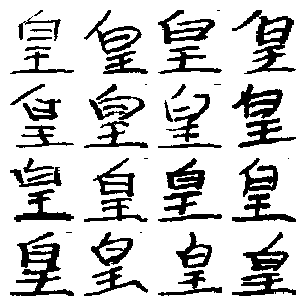 皇皇皇皇
皇皇皇皇
皇皇皇皇
皇皇皇皇